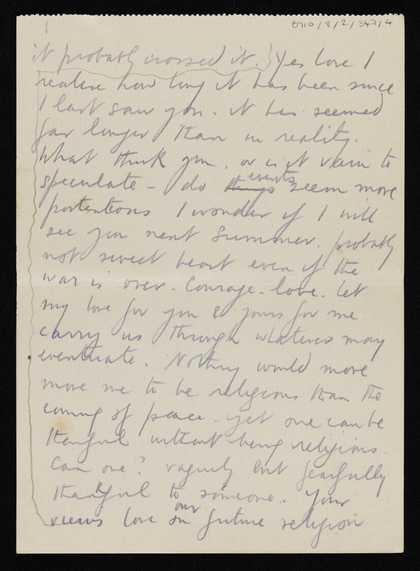 0710/8/2/343/4
it probably crossed it.) Yes love I
realise how long it has been since
I last saw you. it has seemed
far longer than in reality.
What think you. or is it vain to
speculate - do things events seem more
portentous I wonder if I will
see you next Summer. probably
not sweet heart even if the
war is over. Courage. love. let
my love for you & yours for me
carry us through whatever may
eventuate. Nothing would move
more me to be religious than the
coming of peace. yet one can be
thankful without being religious.
Can one? vaguely but fearfully
thankful to someone. Your
views love on our future religion